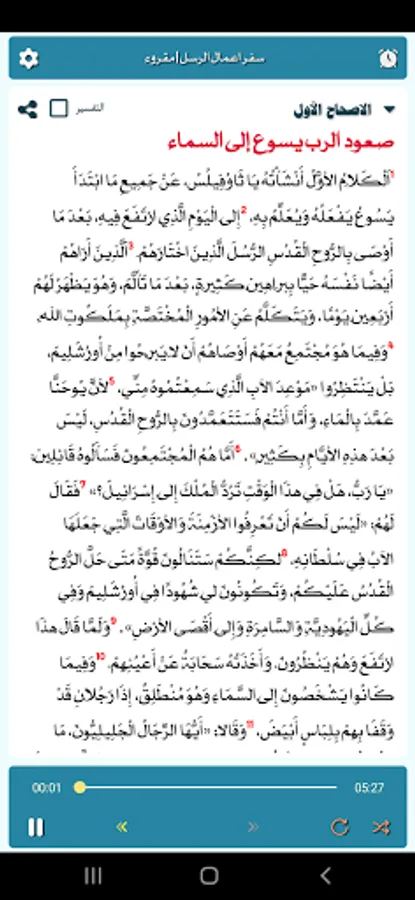 سفر اعمال الرسل | مقروء
الاصحاح الأول
التفسير
صعود الرب يسوع إلى السماء
1اَلْكَلاَمُ الأَوَّلُ أَنْشَأْتُهُ يَا ثَاوُفِيلُسُ، عَنْ جَمِيعِ مَا ابْتَدَأَ
يَسُوعُ يَفْعَلُهُ وَيُعَلِّمُ بِهِ، 2إِلَى الْيَوْمِ الَّذِي ارْتَفَعَ فِيهِ، بَعْدَ مَا
أَوْصَى بِالرُّوحِ الْقُدُسِ الرُّسُلَ الَّذِينَ اخْتَارَهُمْ. 3اَلَّذِينَ أَرَاهُمْ
أَيْضًا نَفْسَهُ حَيًّا بِبَرَاهِينَ كَثِيرَةٍ، بَعْدَ مَا تَأَلَّمَ، وَهُوَ يَظْهَرُ لَهُمْ
أَرْبَعِينَ يَوْمًا، وَيَتَكَلَّمُ عَنِ الأُمُورِ الْمُخْتَصَّةِ بِمَلَكُوتِ اللهِ.
4وَفِيمَا هُوَ مُجْتَمِعٌ مَعَهُمْ أَوْصَاهُمْ أَنْ لاَ يَبْرَحُوا مِنْ أُورُشَلِيمَ،
بَلْ يَنْتَظِرُوا «مَوْعِدَ الآبِ الَّذِي سَمِعْتُمُوهُ مِنِّي، 5لأَنَّ يُوحَنَّا
عَمَّدَ بِالْمَاءِ، وَأَمَّا أَنْتُمْ فَسَتَتَعَمَّدُونَ بِالرُّوحِ الْقُدُسِ، لَيْسَ
بَعْدَ هذِهِ الأَيَّامِ بِكَثِيرٍ». 6أَمَّا هُمُ الْمُجْتَمِعُونَ فَسَأَلُوهُ قَائِلِينَ:
«يَا رَبُّ، هَلْ فِي هذَا الْوَقْتِ تَرُدُّ الْمُلْكَ إِلَى إِسْرَائِيلَ؟» 7فَقَالَ
لَهُمْ: «لَيْسَ لَكُمْ أَنْ تَعْرِفُوا الأَزْمِنَةَ وَالأَوْقَاتَ الَّتِي جَعَلَهَا
الآبُ فِي سُلْطَانِهِ، 8لكِنَّكُمْ سَتَنَالُونَ قُوَّةً مَتَى حَلَّ الرُّوحُ
الْقُدُسُ عَلَيْكُمْ، وَتَكُونُونَ لِي شُهُودًا فِي أُورُشَلِيمَ وَفِي
كُلِّ الْيَهُودِيَّةِ وَالسَّامِرَةِ وَإِلَى أَقْصَى الأَرْضِ». 9وَلَمَّا قَالَ هذَا
ارْتَفَعَ وَهُمْ يَنْظُرُونَ. وَأَخَذَتْهُ سَحَابَةٌ عَنْ أَعْيُنِهِمْ. 10وَفِيمَا
كَانُوا يَشْخَصُونَ إِلَى السَّمَاءِ وَهُوَ مُنْطَلِقٌ، إِذَا رَجُلاَنِ قَدْ
وَقَفَا بِهِمْ بِلِبَاسٍ أَبْيَضَ، 11وَقَالاَ: «أَيُّهَا الرِّجَالُ الْجَلِيلِيُّونَ، مَا
00:01
05:27